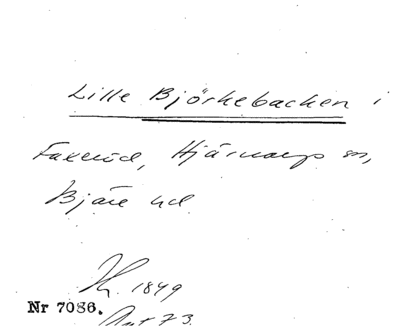 Lille Björkebacken i
Faxeröd, Hjärnarps sn,
Bjäre hd
Jh. 1849
Nr 7086.
Ant 73.